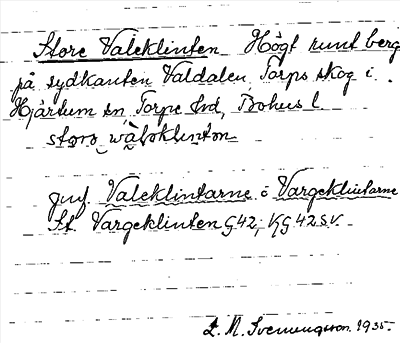 Store Valeklinten Högt runt berg
på sydkanten Valdalen, Torps skog i
Hjärtum sn, Torpe hd, Bohus l.
storɔ wàloklinton
jmf. Valeklintarne o Vargeklintarne
St. Vargeklinten G42; KG 42 SV.
L. M. Svennungsson. 1935.